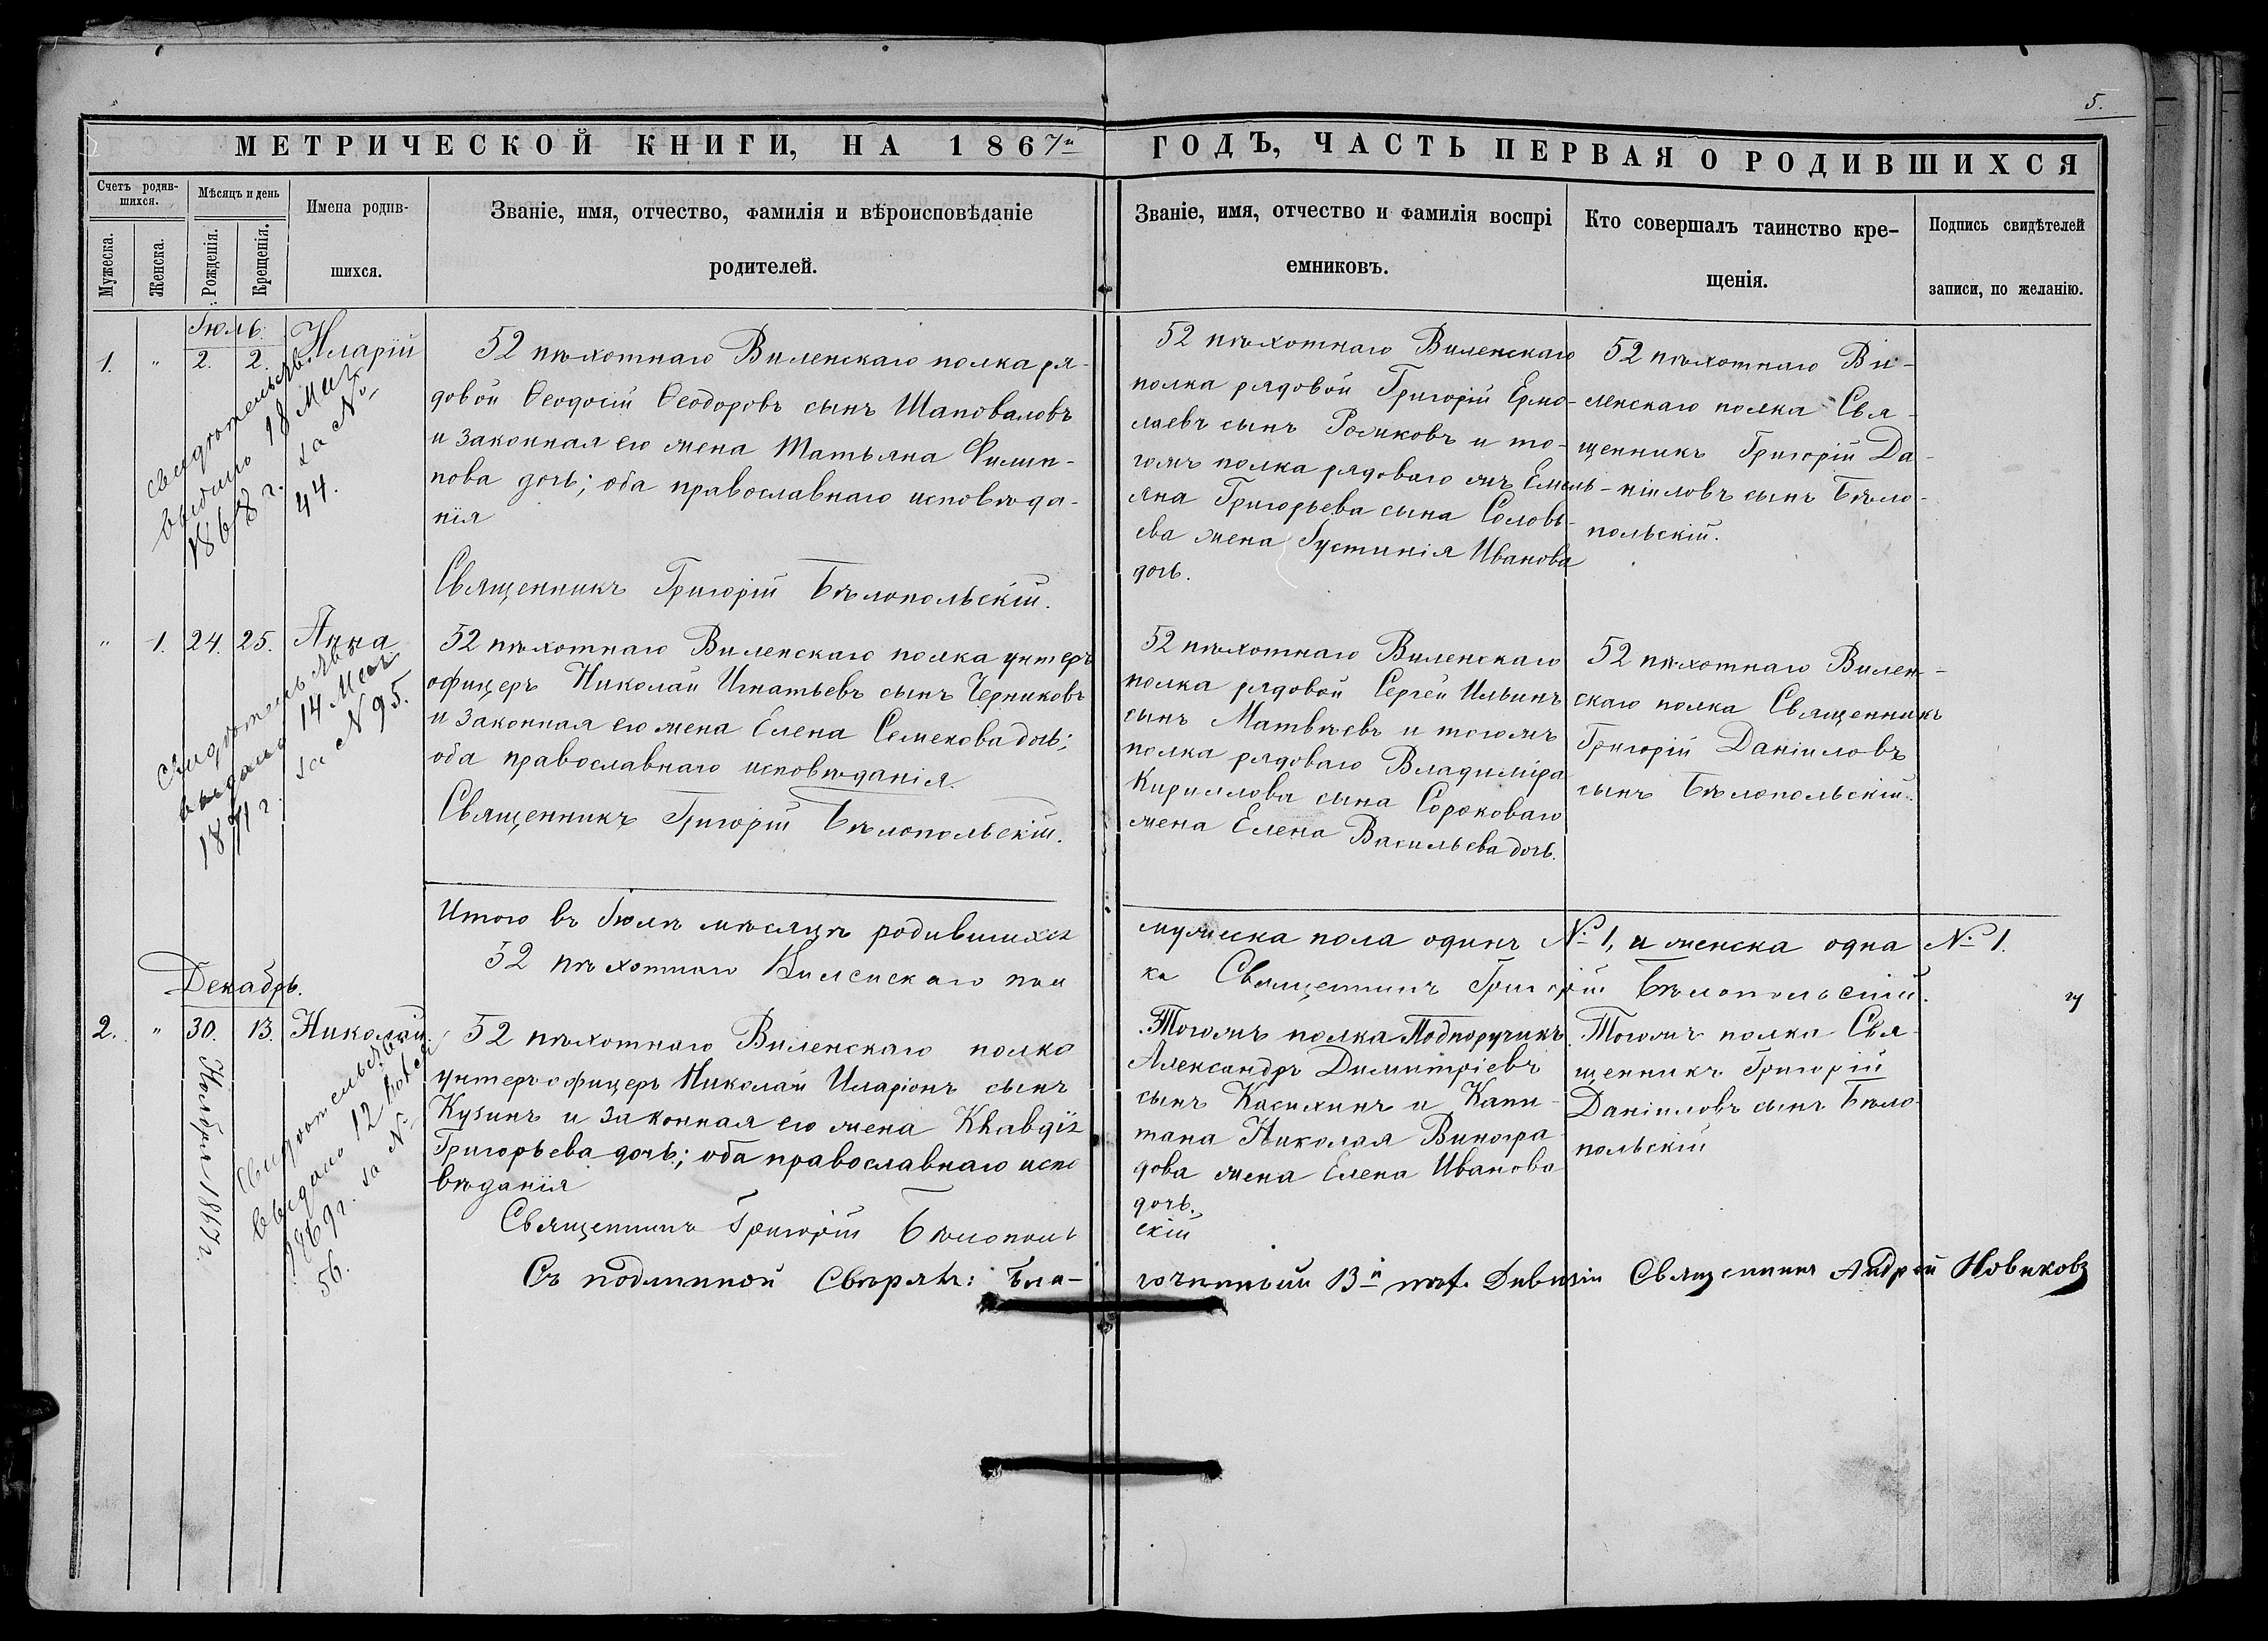 5.
МЕТРИЧЕСКОЙ КНИГИ, НА 1867й ГОДЪ, ЧАСТЬ ПЕРВАЯ О РОДИВШИХСЯ
Счетъ родив-
шихся.
Мужеска.
Женска.
Мѣсяцъ и день
Рожденія.
Крещенія.
Имена родив-
шихся.
Званіе, имя, отчество, фамилія и вѣроисповѣданіе
родителей.
Званіе, имя, отчество и фамилія воспрі
емниковъ.
Кто совершалъ таинство кре-
щенія.
Подпись свидѣтелей
записи, по желанію.
Іюль.
1. " 2. 2. Иларій
свидѣтельство
выдано 18 Мая
1868 г. за №
44.
52 пѣхотнаго Виленскаго полка ря-
довой Ѳеодосій Ѳеодоровъ сынъ Шаповаловъ
и законная его жена Татьяна Филип-
пова дочь; оба православнаго исповѣда-
нія
Священникъ Григорій Бѣлопольскій.
52 пѣхотнаго Виленскаго
полка рядовой Григорій Ермо-
лаевъ сынъ Роликовъ и то-
гожъ полка рядоваго Емель-
яна Григорьева сына Соловь-
ева жена Іустинія Иванова
дочь.
52 пѣхотнаго Ви-
ленскаго полка Свя-
щенникъ Григорій Да-
ніиловъ сынъ Бѣло-
польскій.
" 1. 24. 25. Анна
Свидѣтельство
выдано 14 Мая
1871 г. за № 95.
52 пѣхотнаго Виленскаго полка унтеръ
офицеръ Николай Игнатьевъ сынъ Черниковъ
и законная его жена Елена Семенова дочь;
оба православнаго исповѣданія.
Священникъ Григорій Бѣлопольскій.
52 пѣхотнаго Виленскаго
полка рядовой Сергей Ильинъ
сынъ Матвѣевъ и тогожъ
полка рядоваго Владиміра
Кириллова сына Сороковаго
жена Елена Васильева дочь.
52 пѣхотнаго Вилен-
скаго полка Священникъ
Григорій Даніиловъ
сынъ Бѣлопольскій.
Итого въ Іюлѣ мѣсяцѣ родившихся мужеска пола одинъ № 1, и женска одна № 1.
52 пѣхотнаго Виленскаго пол ка Священникъ Григорій Бѣлопольскій.
Декабрь.
2. " 30. 13. Николай
Ноября 1867 г.
Свидѣтельство
выдано 12
1869 г. за №
56.
52 пѣхотнаго Виленскаго полка
унтеръ офицеръ Николай Иларіонъ сынъ
Кузинъ и законная его жена Клавдія
Григорьева дочь; оба православнаго испо
вѣданія
Священникъ Григорій Бѣлополь
скій
Тогожъ полка Подпоручикъ
Александръ Димитріевъ
сынъ Касихинъ и Капи-
тана Николая Виногра
дова жена Елена Иванова
дочь.
Тогожъ полка Свя-
щенникъ Григорій
Даніиловъ сынъ Бѣло-
польскій
Съ подлинной Свѣрялъ: Бла-гочинный 13й пѣх. Дивизіи Священникъ Андрей Новиковъ